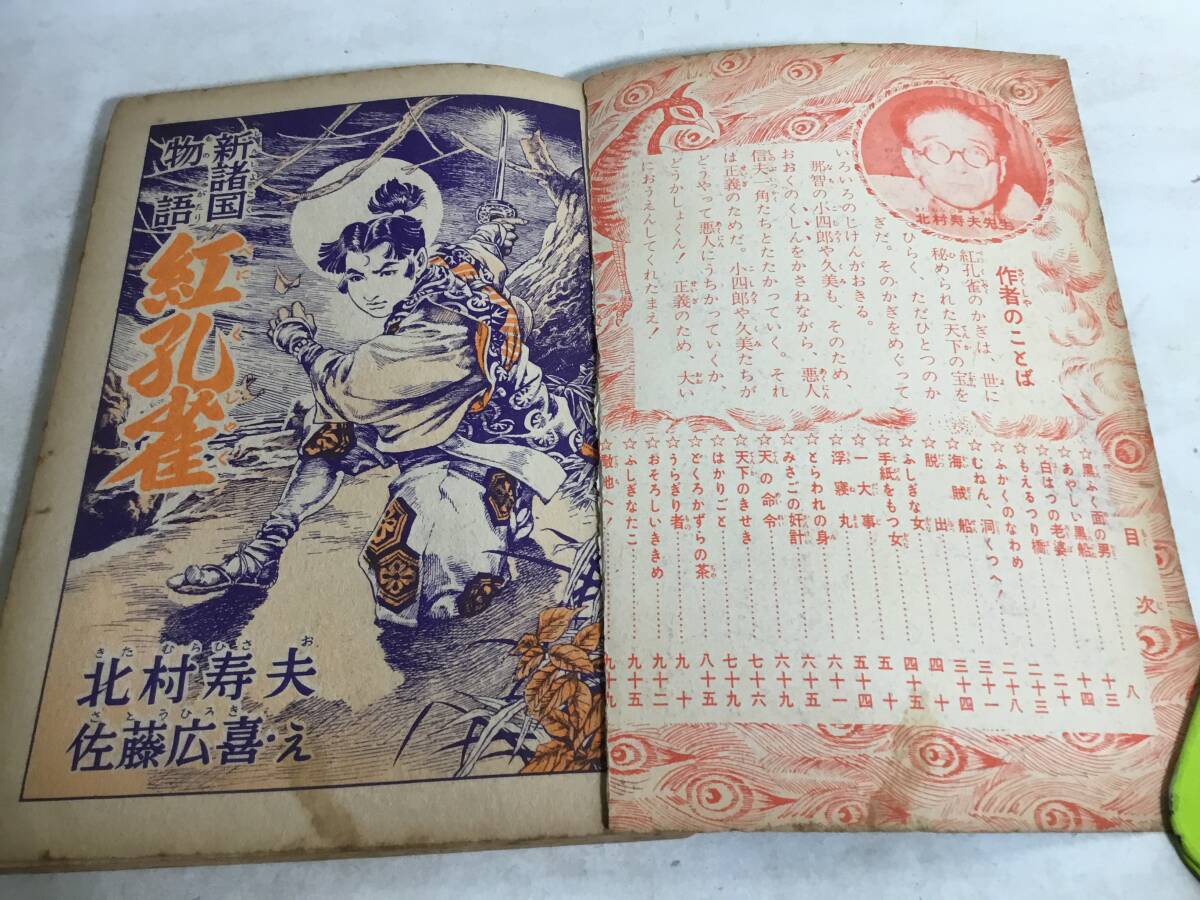 北村寿夫先生
作者のことば
紅孔雀のかぎは、世に
秘められた天下の宝を
ひらく、ただひとつのか
ぎだ。そのかぎをめぐって
いろいろのじけんがおきる。
那智の小四郎や久美も、そのため、
おおくのくしんをかさねながら、悪人
信夫一角たちとたたかっていく。それ
は正義のためだ。小四郎や久美たちが
どうやって悪人にうちかっていくか、
どうかしょくん!正義のため、大い
におうえんしてくれたまえ!
目次
☆黒ふく面の男 八
☆あやしい黒船 十三
☆白はつの老婆 十四
☆もえるつり橋 二十
☆ふかくのなわめ 二十三
☆むねん、洞くつへ! 二十八
☆海賊船 三十一
☆脱出 三十四
☆ふしぎな女 四十
☆手紙をもつ女 四十五
☆一大事 五十
☆浮寝丸 五十四
☆とらわれの身 六十一
☆みさごの奸計 六十五
☆天の命令 六十九
☆天下のきせき 七十六
☆はかりごと 七十九
☆どくろかずらの茶 八十五
☆うらぎり者 九十
☆おそろしいききめ 九十二
☆ふしぎなたこ 九十五
☆敵地へ! 九十九
新諸国
物語
紅孔雀
北村寿夫
佐藤広喜・え